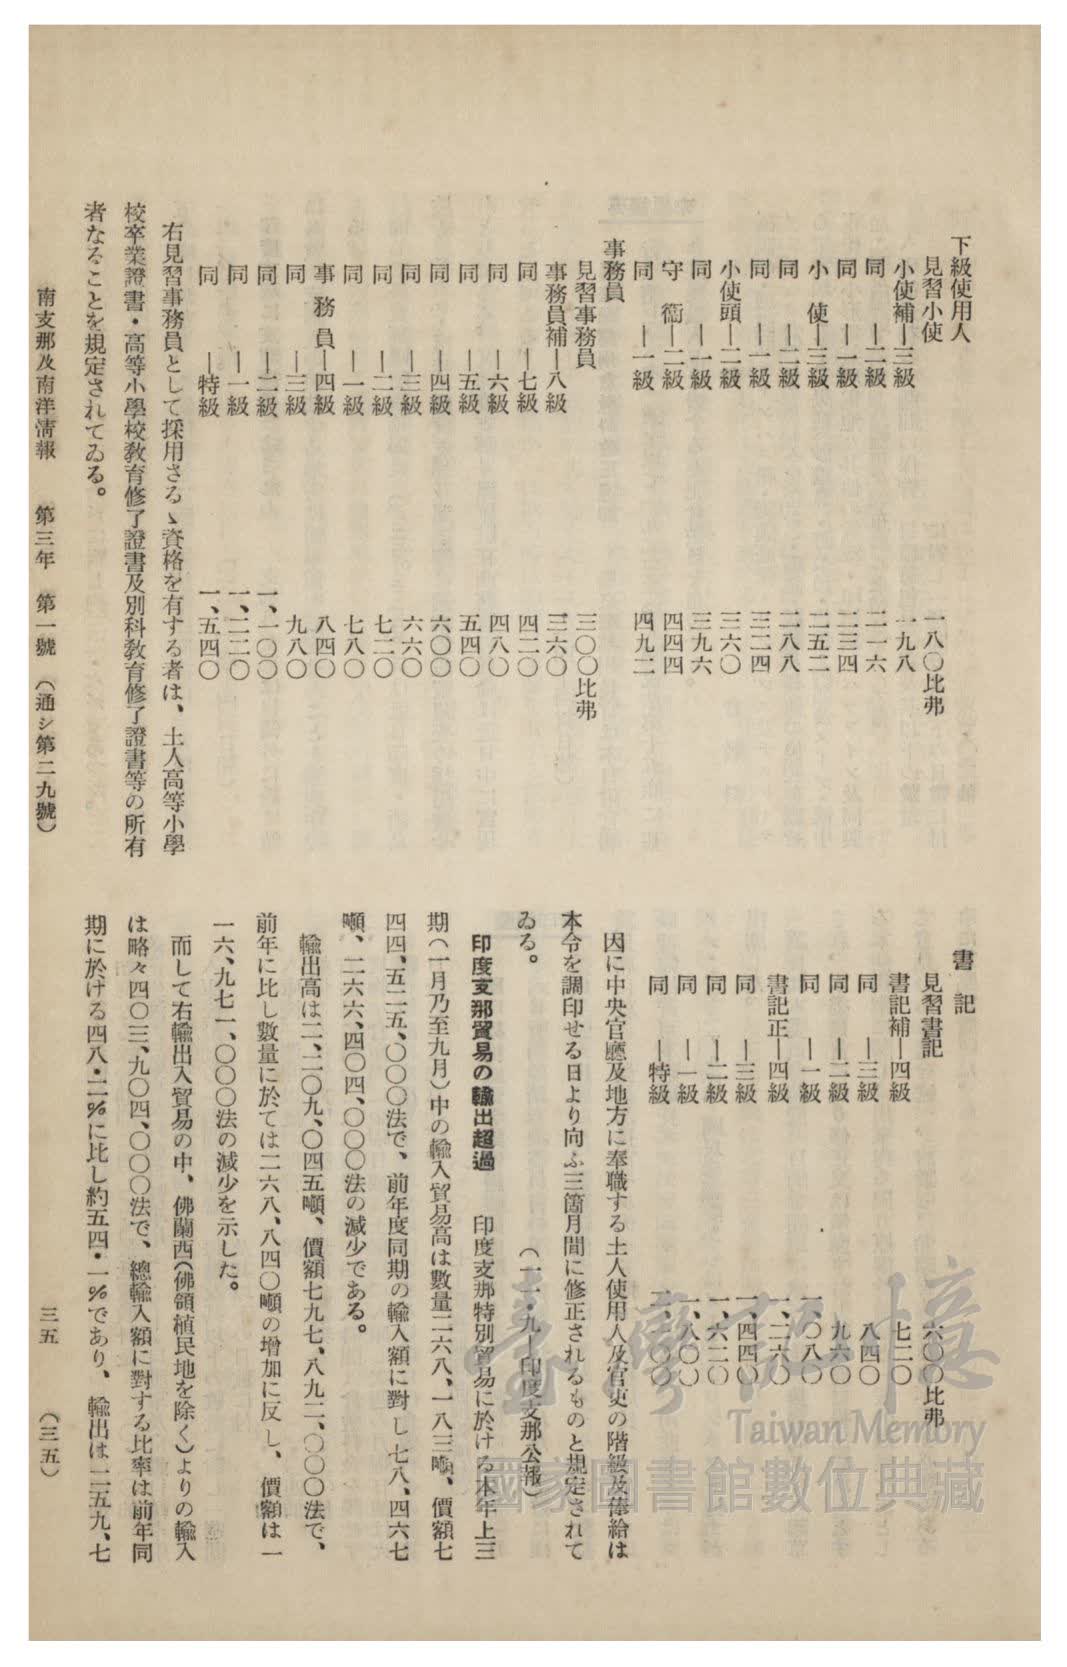 下級使用人
見習小使 一八〇比弗
小使補―三級 一九八
同 ―二級 二一六
同 ―一級 二三四
小使―三級 二五二
同 ―二級 二八八
同 ―一級 三二四
小使頭―二級 三六〇
同 ―一級 三九六
守衞―二級 四四四
同 ―一級 四九二
事務員
見習事務員 三〇〇比弗
事務員補―八級 三六〇
同 ―七級 四二〇
同 ―六級 四八〇
同 ―五級 五四〇
同 ―四級 六〇〇
同 ―三級 六六〇
同 ―二級 七二〇
同 ―一級 七八〇
事務員―四級 八四〇
同 ―三級 九八〇
同 ―二級 一、一〇〇
同 ―一級 一、二二〇
同 ―特級 一、五四〇
右見習事務員として採用さるゝ資格を有する者は、土人高等小學
校卒業證書・高等小學校教育修了證書及別科教育修了證書等の所有
者なることを規定されてゐる。
書記
見習書記 六〇〇比弗
書記補―四級 七二〇
同 ―三級 八四〇
同 ―二級 九六〇
同 ―一級 一、〇八〇
書記正―四級 一、二六〇
同 ―三級 一、四四〇
同 ―二級 一、六二〇
同 ―一級 一、八〇〇
同 ―特級 二、一〇〇
因に中央官廳及地方に奉職する土人使用人及官吏の階級及俸給は
本令を調印せる日より向ふ三箇月間に修正されるものと規定されて
ゐる。 (一一・九―印度支那公報)
印度支那貿易の輸出超過 印度支那特別貿易に於ける本年上三
期(一月乃至九月)中の輸入貿易高は數量二六八、一八三噸、價額七
四四、五二五、〇〇〇法で、前年度同期の輸入額に對し七八、四六七
噸、二六六、四〇四、〇〇〇法の減少である。
輸出高は二、二〇九、〇四五噸、價額七九七、八九二、〇〇〇法で、
前年に比し數量に於ては二六八、八四〇噸の增加に反し、價額は一
一六、九七一、〇〇〇法の減少を示した。
而して右輸出入貿易の中、佛蘭西(佛領植民地を除く)よりの輸入
は略々四〇三、九〇四、〇〇〇法で、總輸入額に對する比率は前年同
期に於ける四八・二%に比し約五四・一%であり、輸出は二五九、七
南支那及南洋情報 第三年 第一號 (通シ第二九號) 三五 (三五)
臺灣記憶
Taiwan Memory
國家圖書館數位典藏